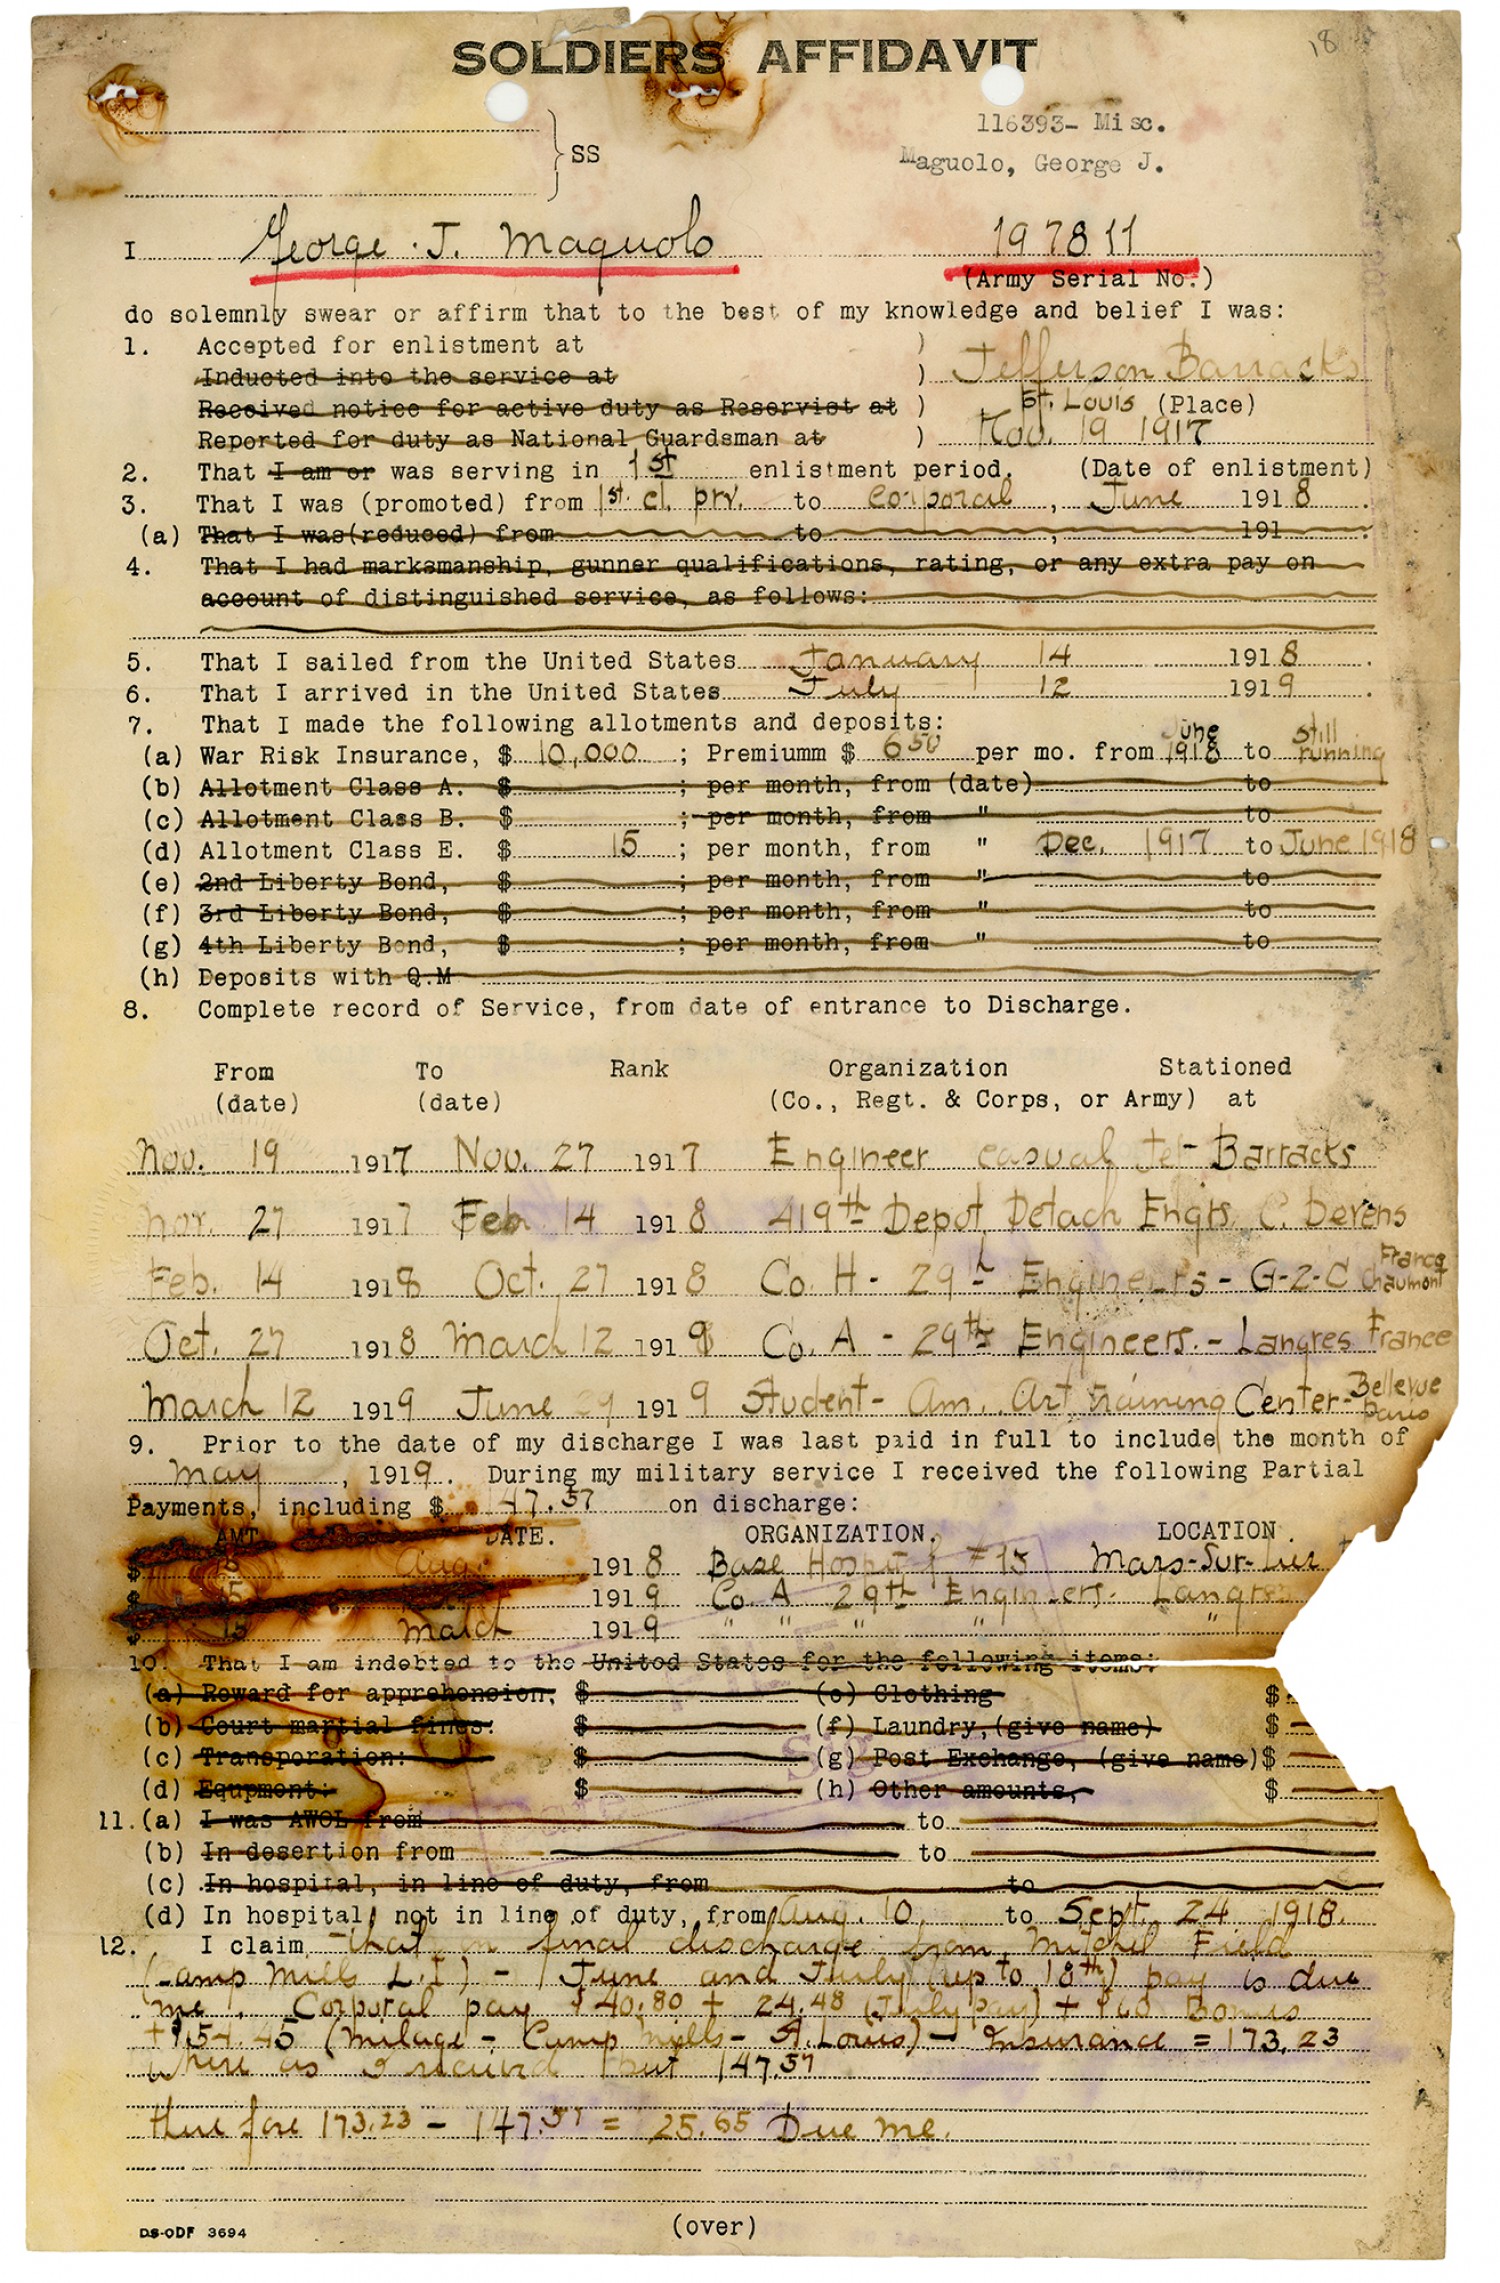 18
SOLDIERS AFFIDAVIT
116393- Misc.
SS
Maguolo, George J.
I George J. Maguolo 197811
(Army Serial No.)
do solemnly swear or affirm that to the best of my knowledge and belief I was:
1. Accepted for enlistment at ) Jefferson Barracks
Inducted into the service at )
Received notice for active duty as Reservist at ) St. Louis (Place)
Reported for duty as National Guardsman at ) Nov. 19 1917
2. That I am or was serving in 1st enlistment period. (Date of enlistment)
3. That I was (promoted) from 1st. cl. prv. to corporal, June 1918.
(a) That I was(reduced) from to , 191 .
4. That I had marksmanship, gunner qualifications, rating, or any extra pay on
account of distinguished service, as follows:
5. That I sailed from the United States January 14 1918.
6. That I arrived in the United States July 12 1919.
7. That I made the following allotments and deposits:
(a) War Risk Insurance, $ 10,000 ; Premiumm $ 6 50 per mo. from June 1918 to still running
(b) Allotment Class A. $ ; per month, from (date) to
(c) Allotment Class B. $ ; per month, from " to
(d) Allotment Class E. $ 15 ; per month, from " Dec. 1917 to June 1918
(e) 2nd Liberty Bond, $ ; per month, from " to
(f) 3rd Liberty Bond, $ ; per month, from " to
(g) 4th Liberty Bond, $ ; per month, from " to
(h) Deposits with Q.M
8. Complete record of Service, from date of entrance to Discharge.
From To Rank Organization Stationed
(date) (date) (Co., Regt. & Corps, or Army) at
Nov. 19 1917 Nov. 27 1917 Engineer casual Jef- Barracks
Nov. 27 1917 Feb 14 1918 419th Depot Detach Engrs C. Devens
Feb. 14 1918 Oct. 27 1918 Co. H - 29th Engineers - G-2-C Chaumont France
Oct. 27 1918 March 12 1919 Co. A - 29th Engineers. - Langres France
March 12 1919 June 29 1919 Student - Am. Art training Center- Bellevue Paris
9. Prior to the date of my discharge I was last paid in full to include the month of
May , 1919. During my military service I received the following Partial
Payments, including $ 147.57 on discharge:
AMT. DATE. ORGANIZATION. LOCATION.
$ Aug. 1918 Base Hospital #15 Mars-Sur-
$ 15 1919 Co. A 29th Engineers. Langres
$ 15 March 1919 " " " " "
10. That I am indebted to the United States for the following items:
(a) Reward for apprehension, $ (e) Clothing $
(b) Court martial fines: $ (f) Laundry,(give name) $
(c) Transporation: $ (g) Post Exchange, (give name)$
(d) Equpment: $ (h) Other amounts, $
11.(a) I was AWOL from to
(b) In desertion from to
(c) In hospital, in line of duty, from to
(d) In hospital, not in line of duty, from Aug. 10, to Sept. 24 1918.
12. I claim that on final discharge from Mitchel Field
(Camp Mills L.I) - June and July (up to 18th) pay is due
me. Corporal pay $40.80 + 24.48 (July pay) + $60 Bonus
+ $54.45 (milage - Camp Mills - St. Louis) - Insurance = 173.23
where as I received but 147.57
there fore 173.23 - 147.57 = 25.65 Due me.
DS-ODF 3694
(over)